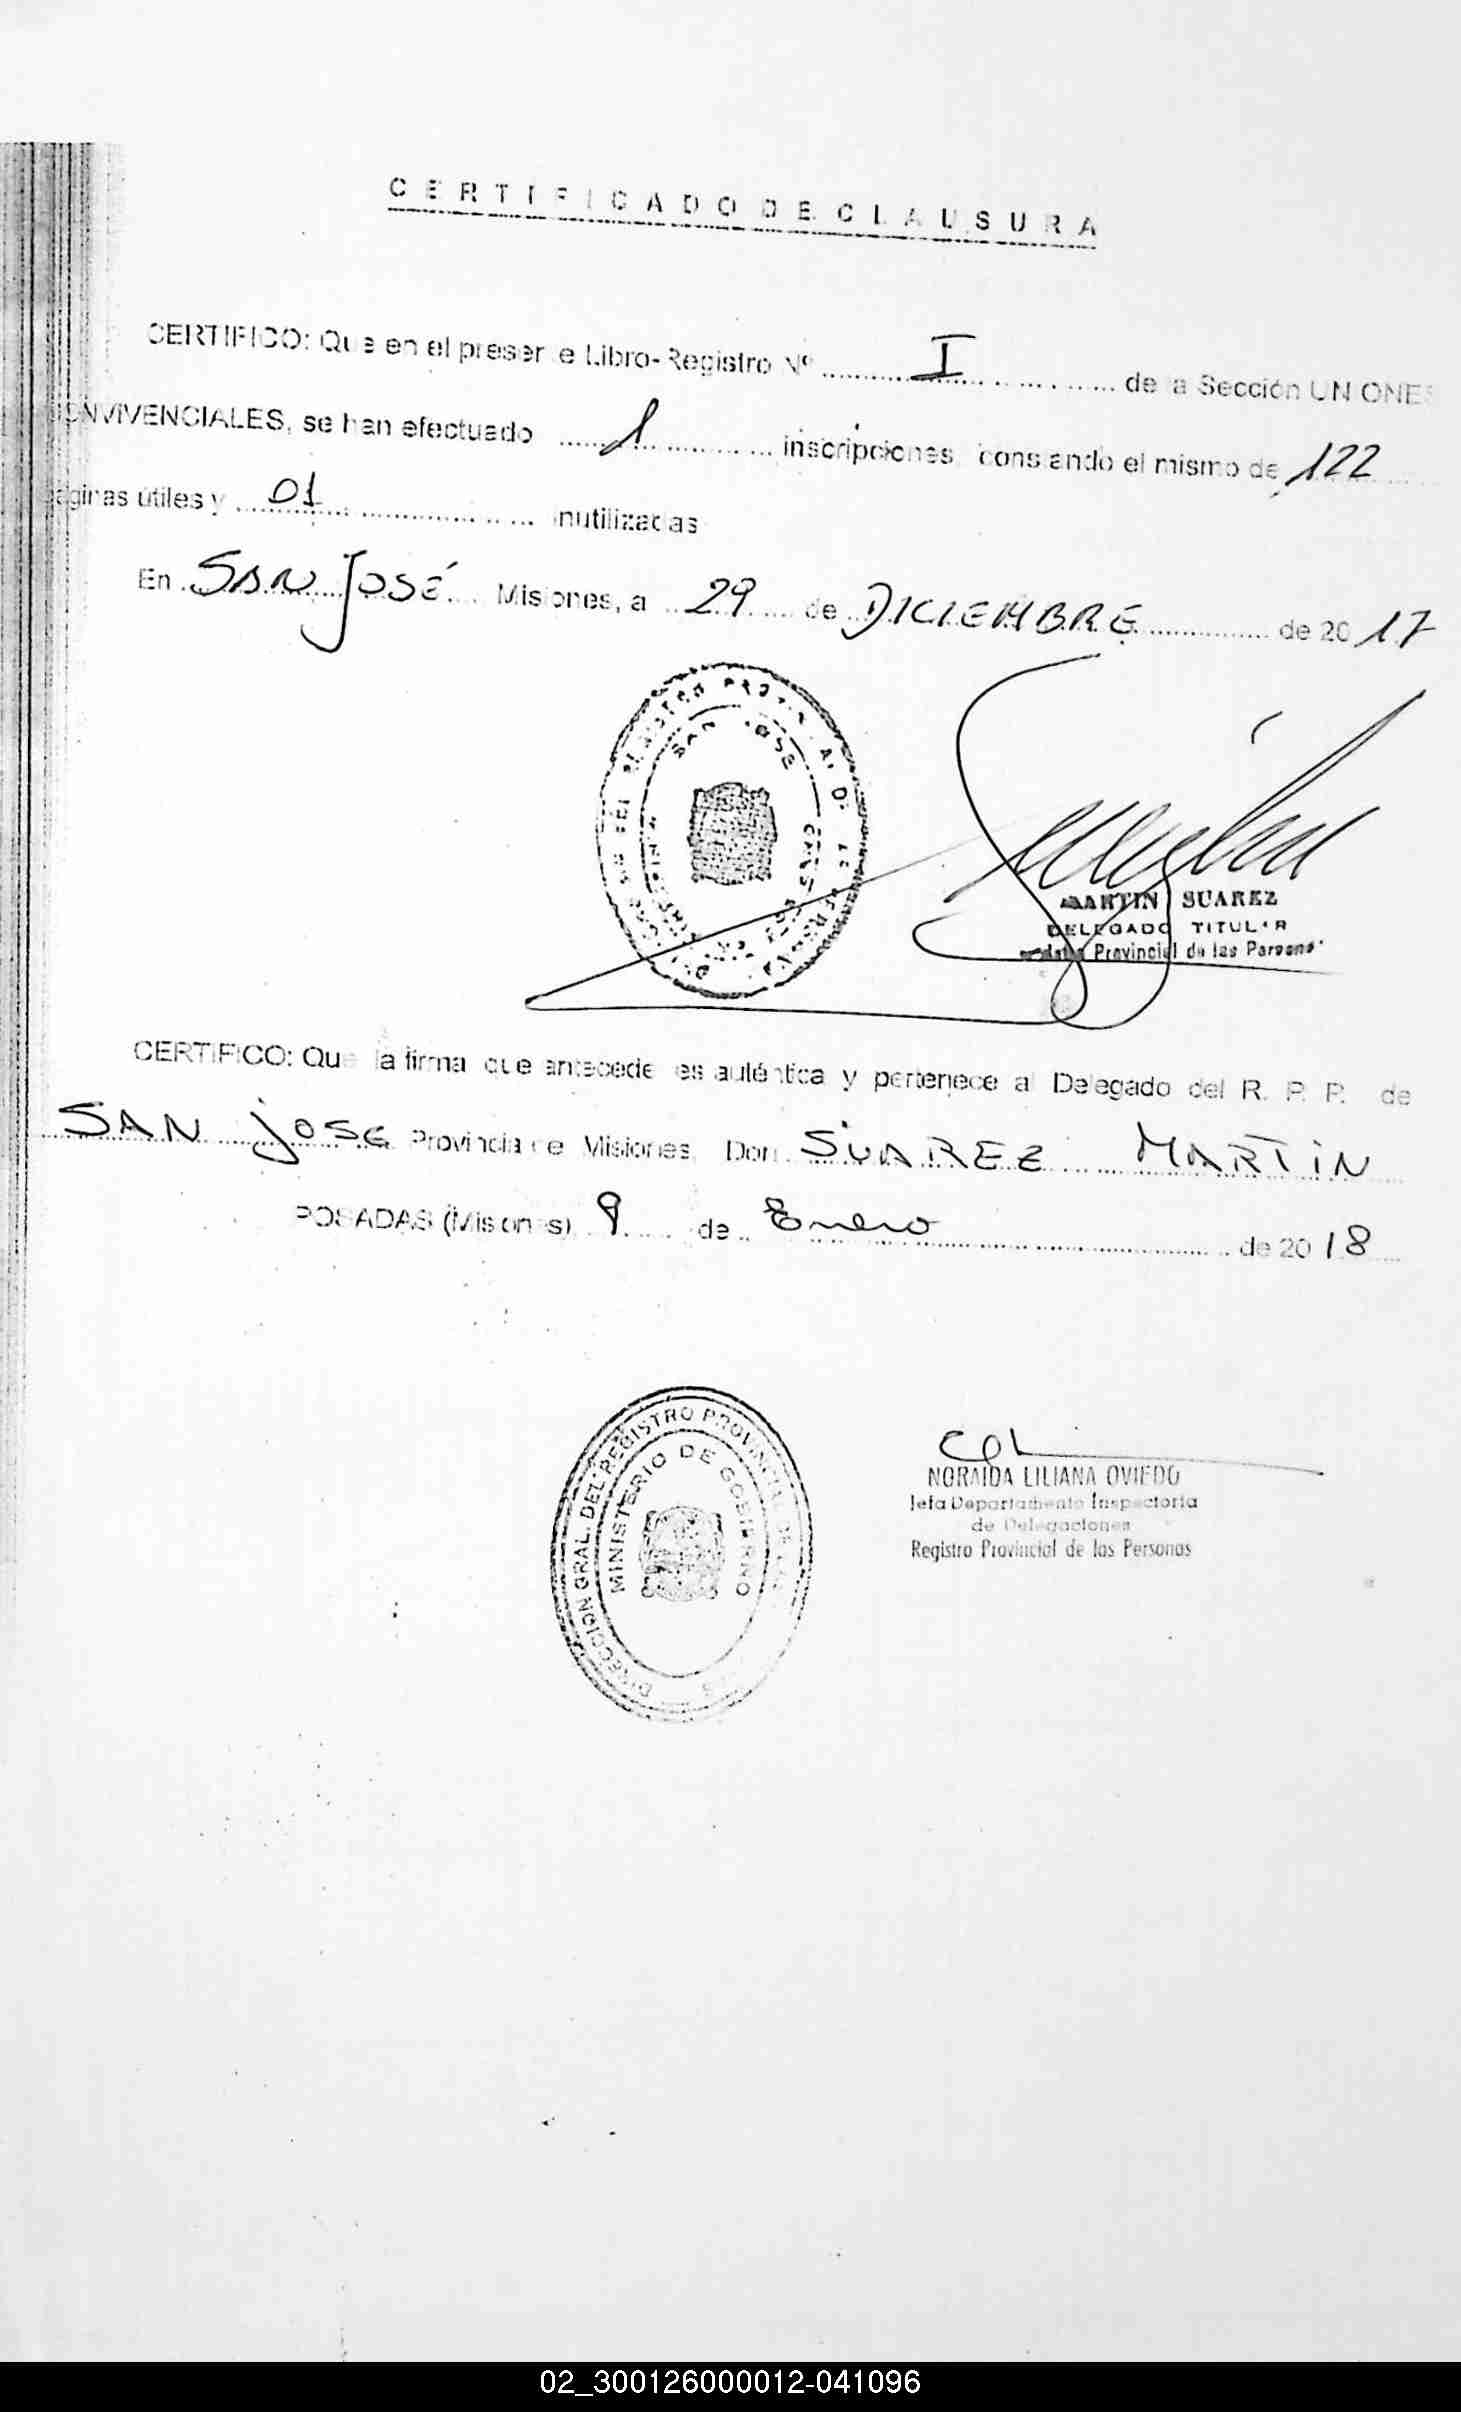 CERTIFICADO DE CLAUSURA
CERTIFICO: Que en el presente Libro-Registro Nº I de la Sección UNIONES
CONVIVENCIALES, se han efectuado 1 inscripciones, constando el mismo de 122
páginas útiles y 01 inutilizadas
En SAN JOSÉ Misiones, a 29 de DICIEMBRE de 2017
SAN JOSE
MARTIN SUAREZ
DELEGADO TITULAR
Provincial de las Personas
CERTIFICO: Que la firma que antecede es auténtica y pertenece al Delegado del R. P. P. de
SAN JOSE Provincia de Misiones, Don SUAREZ MARTIN
POSADAS (Misiones), 9 de Enero de 2018
DIRECCION GRAL. DEL REGISTRO PROVINCIAL DE LAS
MINISTERIO DE GOBIERNO
NORAIDA LILIANA OVIEDO
Jefa Departamento Inspectoría
de Delegaciones
Registro Provincial de las Personas
02_300126000012-041096